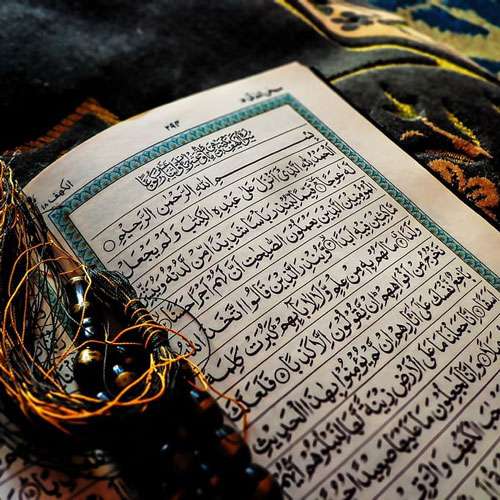 ٢٩٣
الكهف ١٨
بِسْمِ اللهِ الرَّحْمٰنِ الرَّحِيْمِ
اَلْحَمْدُ لِلّٰهِ الَّذِيْٓ اَنْزَلَ عَلٰى عَبْدِهِ الْكِتٰبَ وَلَمْ يَجْعَلْ
لَّهٗ عِوَجًا ○ قَيِّمًا لِّيُنْذِرَ بَاْسًا شَدِيْدًا مِّنْ لَّدُنْهُ وَيُبَشِّرَ
الْمُؤْمِنِيْنَ الَّذِيْنَ يَعْمَلُوْنَ الصّٰلِحٰتِ اَنَّ لَهُمْ اَجْرًا
فِيْهِ اَبَدًا ○ وَّيُنْذِرَ الَّذِيْنَ قَالُوا اتَّخَذَ
وَلَدًا ○ مَا لَهُمْ بِهٖ مِنْ عِلْمٍ وَّلَا لِاٰبَآئِهِمْ كَبُرَتْ كَلِمَةً
تَخْرُجُ مِنْ اَفْوَاهِهِمْ اِنْ يَّقُوْلُوْنَ اِلَّا كَذِبًا ○ فَلَعَلَّكَ
نَّفْسَكَ عَلٰٓى اٰثَارِهِمْ اِنْ لَّمْ يُؤْمِنُوْا بِهٰذَا الْحَدِيْثِ
اِنَّا جَعَلْنَا مَا عَلَى الْاَرْضِ زِيْنَةً لَّهَا لِنَبْلُوَهُمْ اَيُّهُمْ
وَاِنَّا لَجٰعِلُوْنَ مَا عَلَيْهَا صَعِيْدًا
الْكَهْفِ وَالرَّقِيْمِ